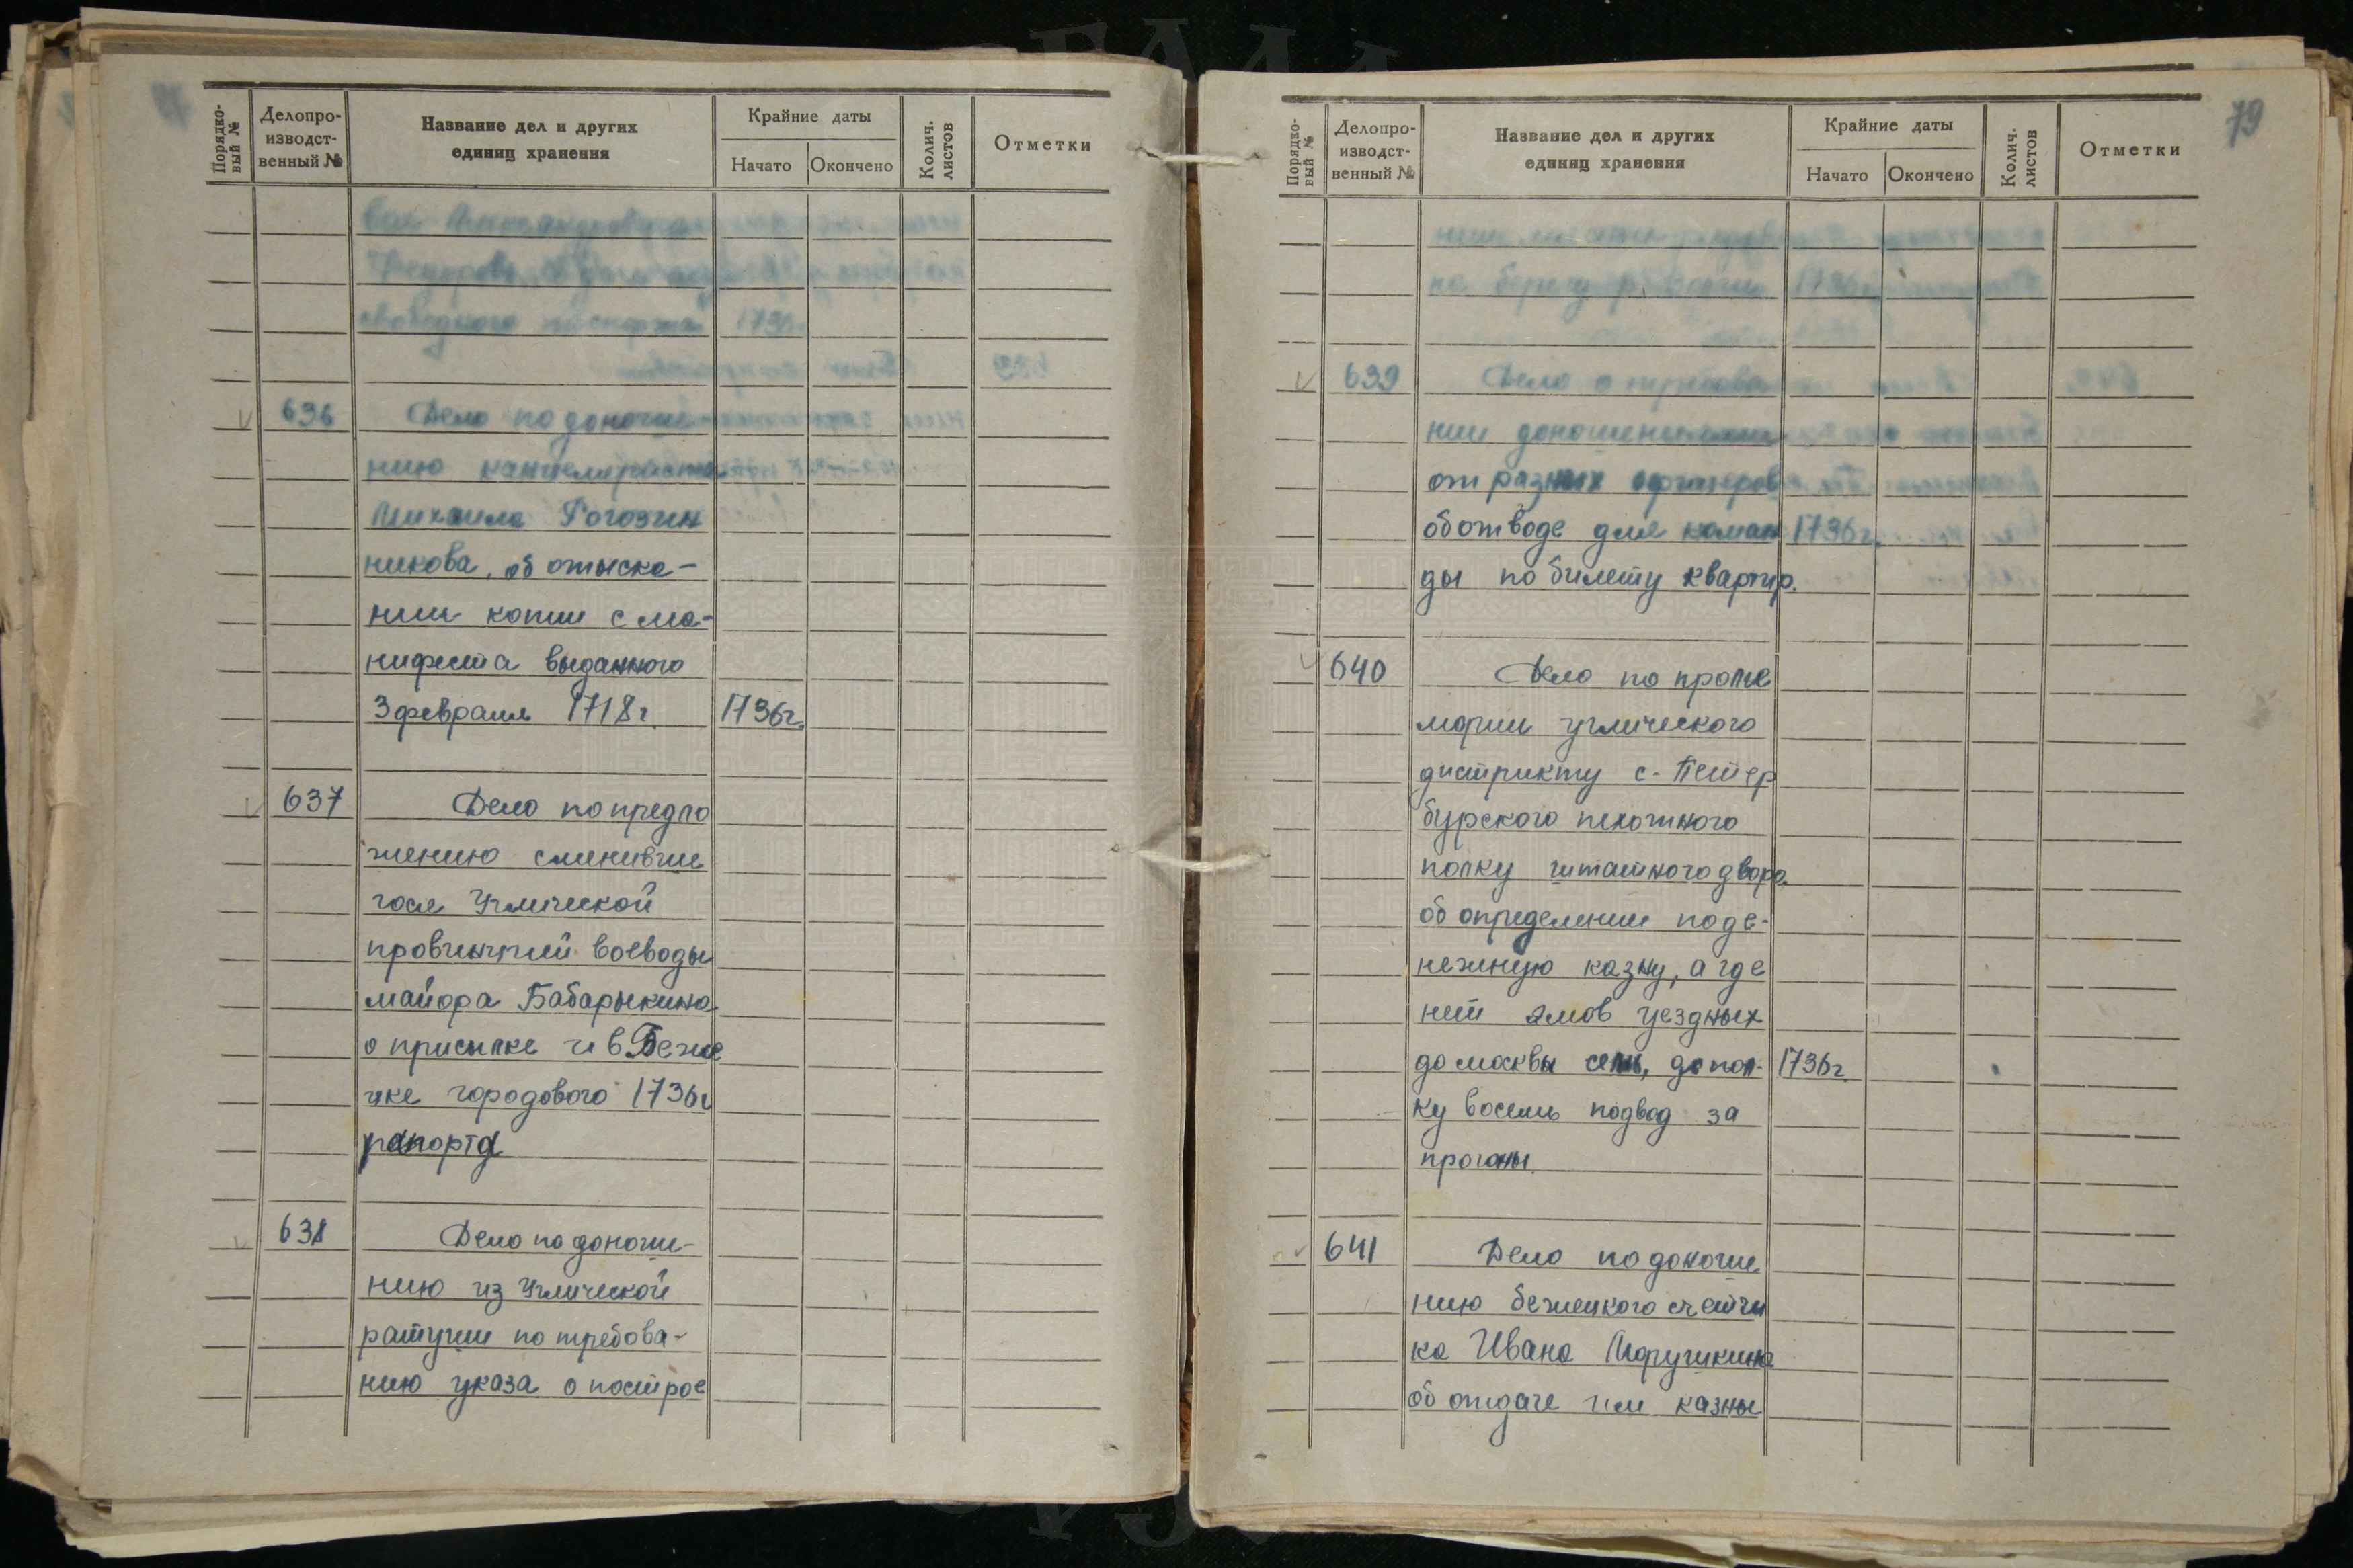 Порядко-
вый №
Делопро-
изводст-
венный №
Название дел и других
единиц хранения
Крайние даты
Начато
Окончено
Колич.
листов
Отметки
Федорова
свободного паспорта 1736
636 Дело по доноше-
нию канцеляриста
Михаила Рогозин
никова, об отыска-
нии копии с ма-
нифеста выданного
3 февраля 1718 г. 1736г.
637 Дело по предло
жению сменивше
гося Углической
провинции воеводы
майора Бабарыкина
о присылке и в Беже
цке городового 1736г
рапорта
638 Дело по доноше-
нию из Углической
ратуши по требова-
нию указа о построе
79
Порядко-
вый №
Делопро-
изводст-
венный №
Название дел и других
единиц хранения
Крайние даты
Начато
Окончено
Колич.
листов
Отметки
на берегу р. Волги 1736
639 Дело о требова
нии доношениями
от разных офицеров
об отводе для коман 1736г.
ды по билету квартир.
640 Дело по проме
мории углического
дистрикту с. Петер
бурского пехотного
полку штатного двора
об определении под е-
нежную казну, а где
нет ямов уездных
до москвы семь, до пол- 1736г.
ку восемь подвод за
прогоны.
641 Дело по доноше
нию бежецкого счетчи
ка Ивана Марушкина
об отдаче им казны